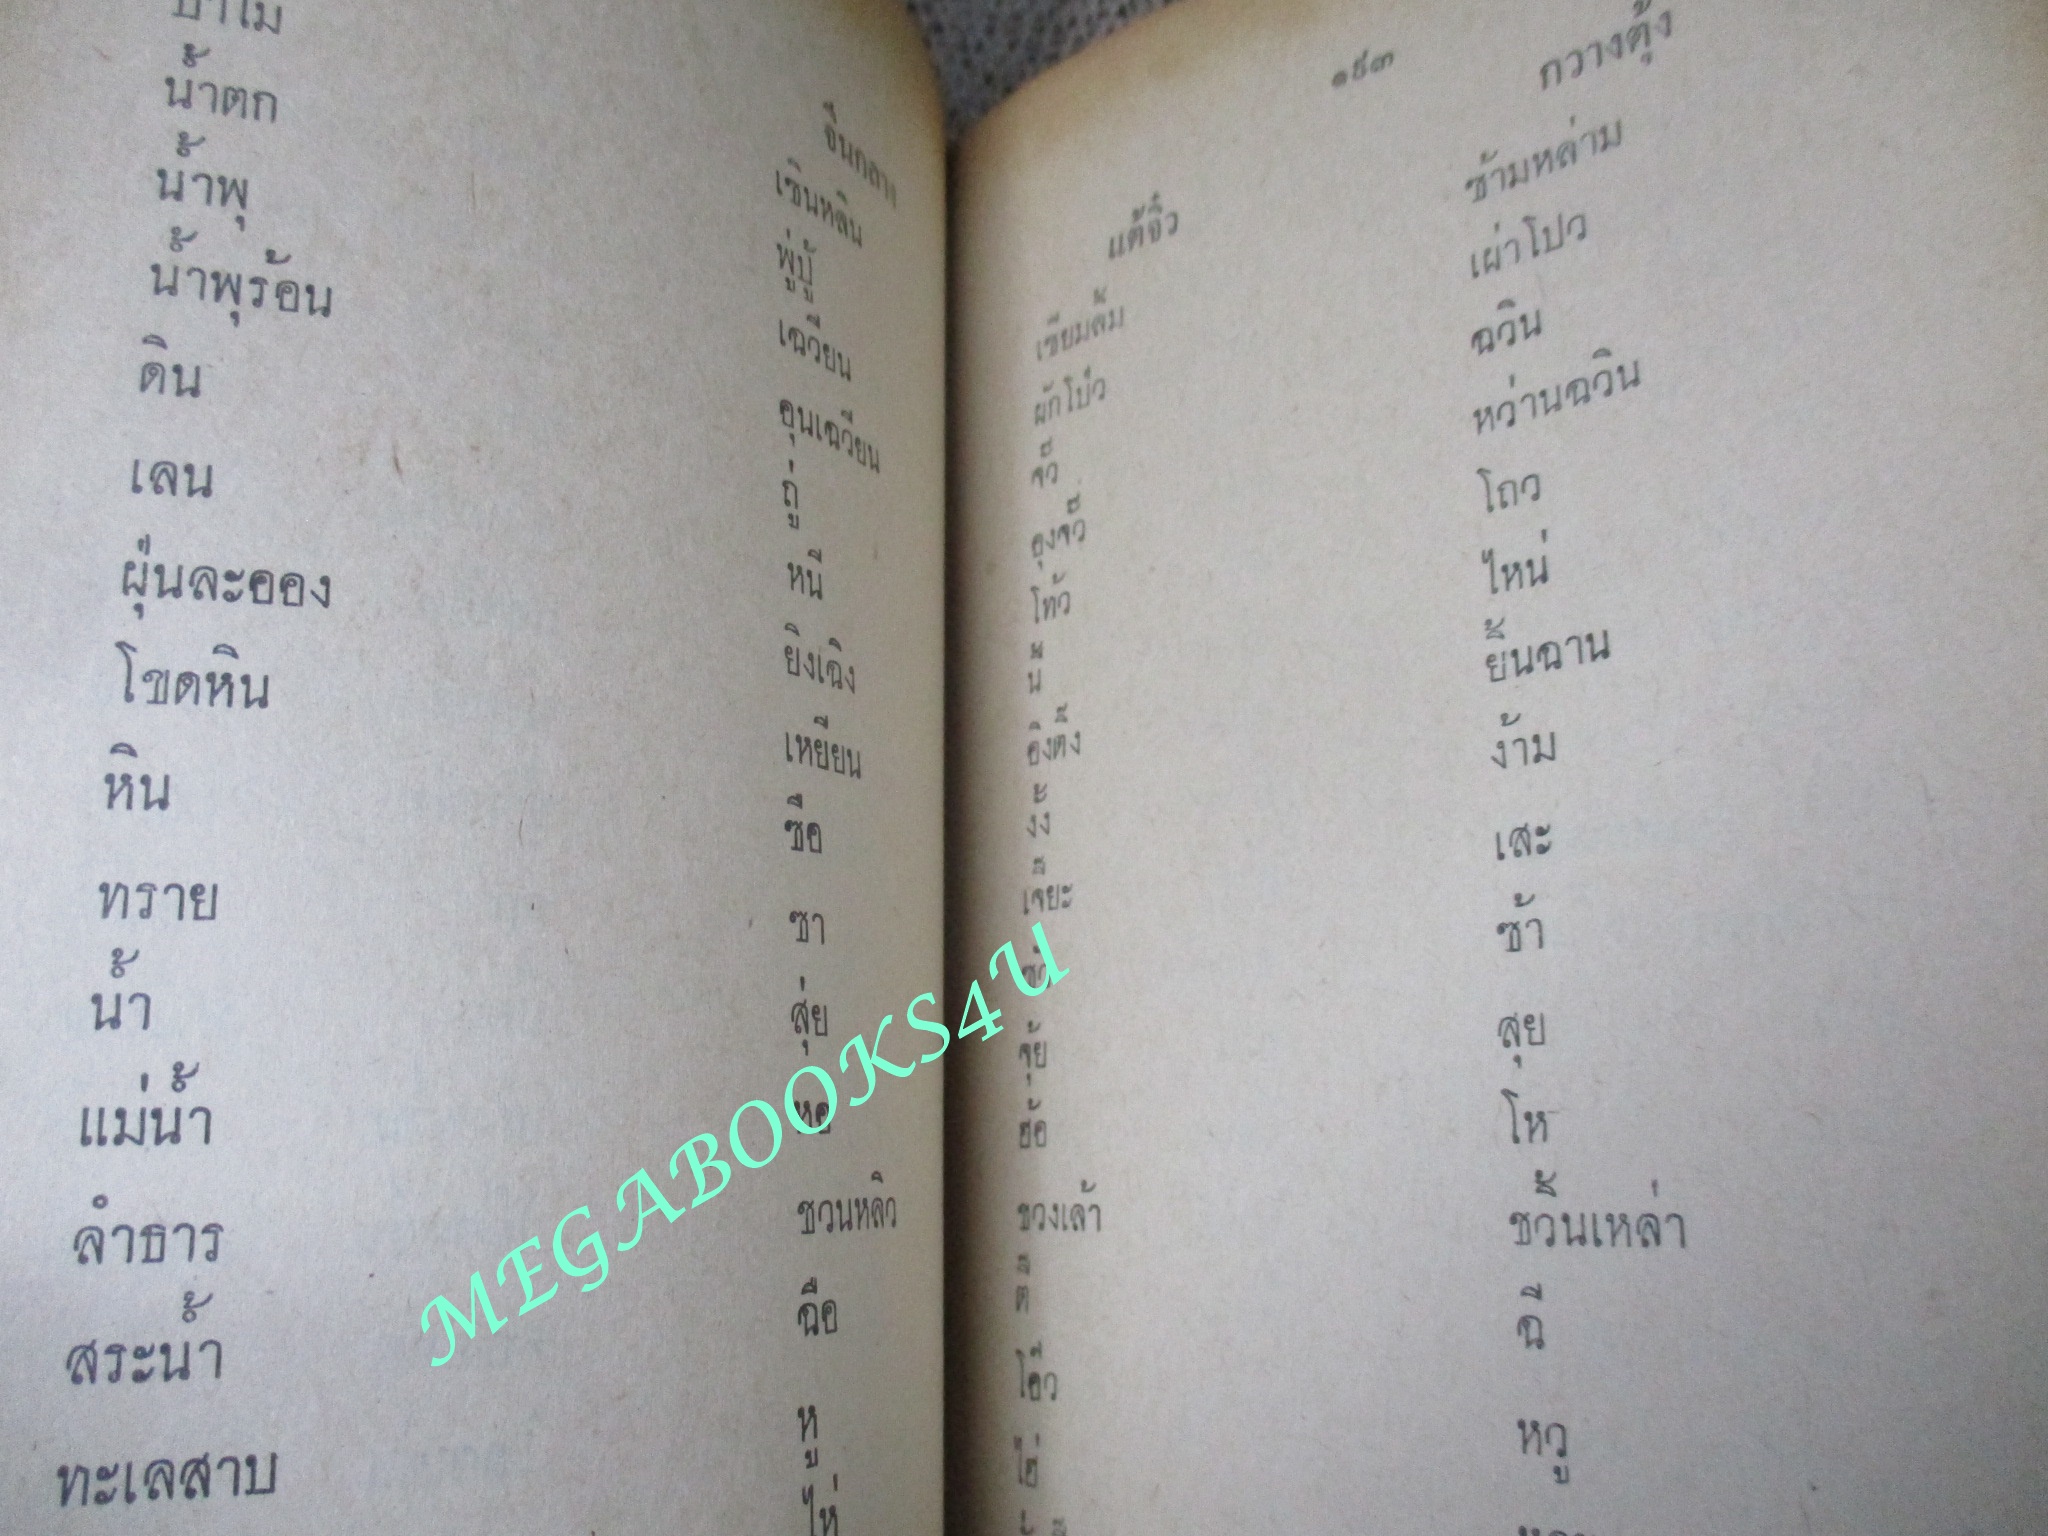 ป่าไม้
น้ำตก
น้ำพุ
น้ำพุร้อน
ดิน
เลน
ฝุ่นละออง
โขดหิน
หิน
ทราย
น้ำ
แม่น้ำ
ลำธาร
สระน้ำ
ทะเลสาบ
จีนกลาง
เซินหลิน
พู่ปู้
เฉวียน
อุนเฉวียน
ถู่
หนี
ยิงเฉิง
เหยียน
ซือ
ซา
สุ่ย
หอ
ชวนหลิว
ฉือ
หู
ไห่
๑๕๓
แต้จิ๋ว
เซียมลั้ม
ผักโป่ว
จวั๊
อุงจวั๊
โทว้
อิงติ๊ง
เจี๊ยะ
จุ้ย
ฮ้อ
ชวงเล้า
ตี๊
โอ๊ว
ไฮ่
กวางตุ้ง
ซ้ามหล่าม
เผ่าโปว
ฉวิน
หว่านฉวิน
โถว
ไหน่
ยิ้นฉาน
ง้าม
เสะ
ซ้า
สุย
โห
ชวิ้นเหล่า
ฉี
หวู
MEGABOOKS4U